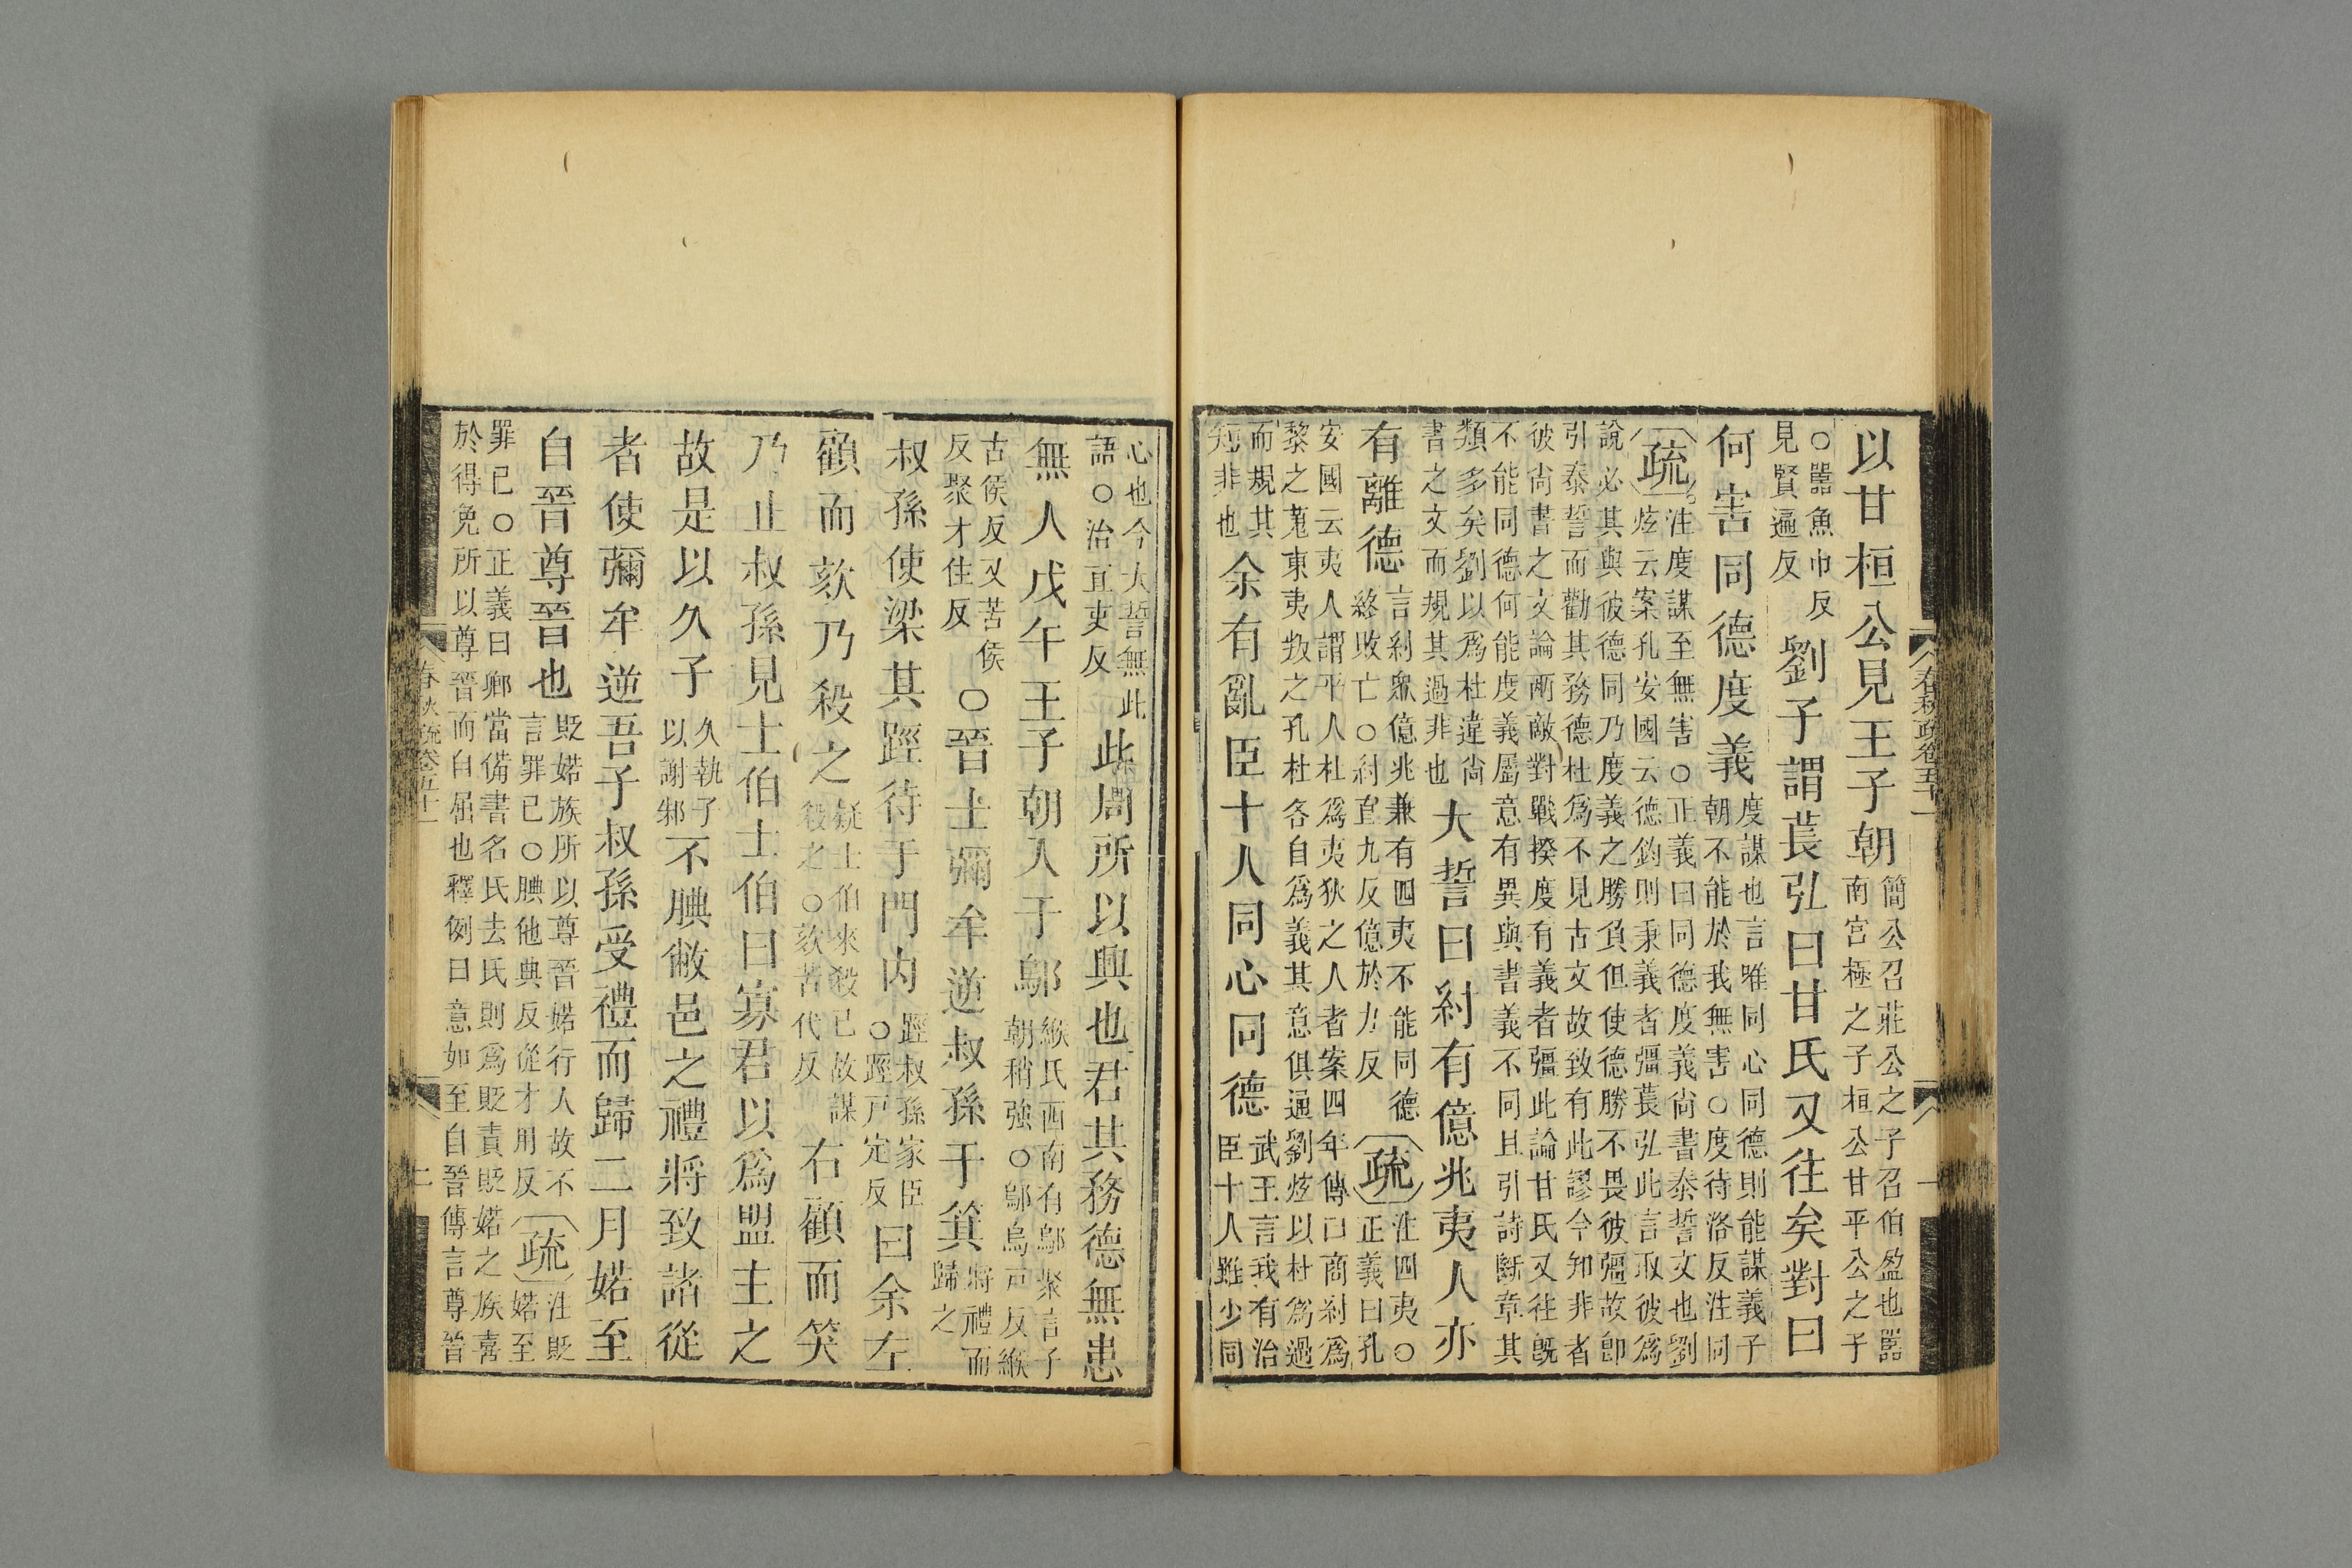 以甘桓公見王子朝簡公召莊公之子召伯盈也嚚南宮極之子桓公甘平公之子
○嚚魚巾反見賢遍反劉子謂萇弘曰甘氏又往矣對曰
何害同德度義度謀也言唯同心同德則能謀義子朝不能於我無害○度待洛反注同
疏注度謀至無害○正義曰同德度義尚書泰誓文也劉炫云案孔安國云德鈞則秉義者彊萇弘此言取彼爲
說必其與彼德同乃度義之勝負但使德勝不畏彼彊故卽
引泰誓而勸其務德杜爲不見古文故致有此謬今知非者
彼尚書之文論兩敵對戰揆度有義者彊此論甘氏又往旣
不能同德何能度義屬意有異與書義不同且引詩斷章其
類多矣劉以爲杜違尚書之文而規其過非也大誓曰紂有億兆夷人亦
有離德言紂衆億兆兼有四夷不能同德終敗亡○紂直九反億於力反疏注四夷○正義曰孔
安國云夷人謂平人杜爲夷狄之人者案四年傳曰商紂爲
黎之蒐東夷叛之孔杜各自爲義其意俱通劉炫以杜爲過
而規其短非也余有亂臣十人同心同德武王言我有治臣十人雖少同
春秋疏卷五十一
心也今大誓無此語○治直吏反此周所以興也君其務德無患
無人戊午王子朝入于鄔緱氏西南有鄔聚言子朝稍強○鄔烏戸反緱
古侯反又苦侯反聚才住反○晉士彌牟逆叔孫于箕將禮而歸之
叔孫使梁其踁待于門內踁叔孫家臣○踁戸定反曰余左
顧而欬乃殺之疑士伯來殺已故謀殺之○欬苦代反右顧而笑
乃止叔孫見士伯士伯曰寡君以爲盟主之
故是以久子久執子以謝邾不腆敝邑之禮將致諸從
者使彌牟逆吾子叔孫受禮而歸二月婼至
自晉尊晉也貶婼族所以尊晉婼行人故不言罪已○腆他典反從才用反疏注貶婼至
罪已○正義曰卿當備書名氏去氏則爲貶責貶婼之族喜
於得免所以尊晉而自屈也釋例曰意如至自晉傳言尊晉
春秋疏卷五十一
二